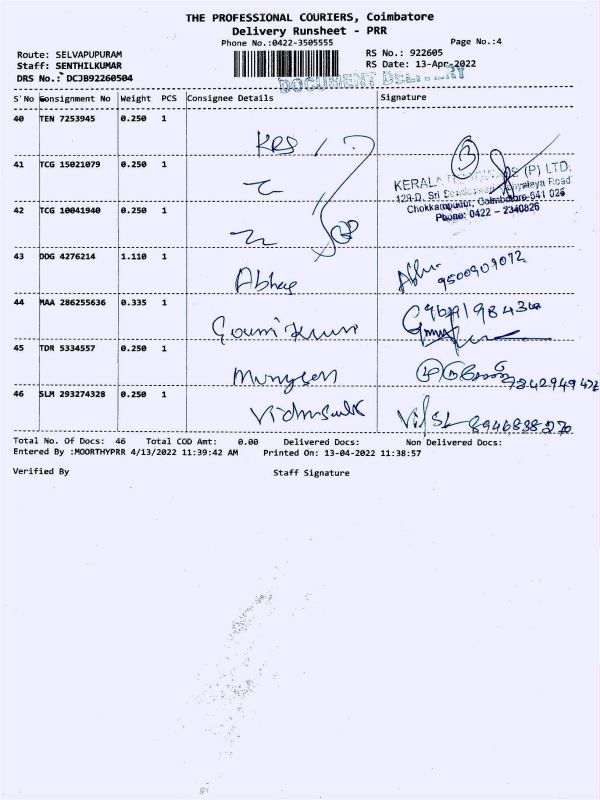 THE PROFESSIONAL COURIERS, Coimbatore
Delivery Runsheet - PRR
Phone No.:0422-3505555
Page No.:4
Route: SELVAPUPURAM
RS No.: 922605
Staff: SENTHILKUMAR
RS Date: 13-Apr-2022
DRS No.: DCJB92260504
DOCUMENT DELIVERY
S'No Consignment No Weight PCS Consignee Details Signature
40 TEN 7253945 0.250 1
KRS
41 TCG 15021079 0.250 1
3
KERALA (P) LTD.
129-D, Sri Road
42 TCG 10041940 0.250 1
Chokkampudur, Coimbatore-641 026
Phone: 0422 - 2340826
43 DDG 4276214 1.110 1
Abhay
9500909072
44 MAA 286255636 0.335 1
45 TDR 5334557 0.250 1
46 SLM 293274328 0.250 1
Total No. Of Docs: 46 Total COD Amt: 0.00 Delivered Docs: Non Delivered Docs:
Entered By :MOORTHYPRR 4/13/2022 11:39:42 AM Printed On: 13-04-2022 11:38:57
Verified By Staff Signature